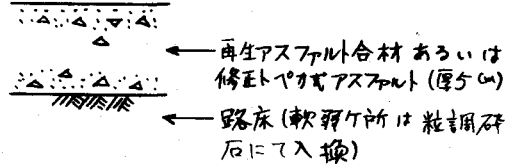 再生アスファルト合材 あるいは
修正トペカ式アスファルト(厚5cm)
路床(軟弱ケ所は 粒調砕
石にて入換)